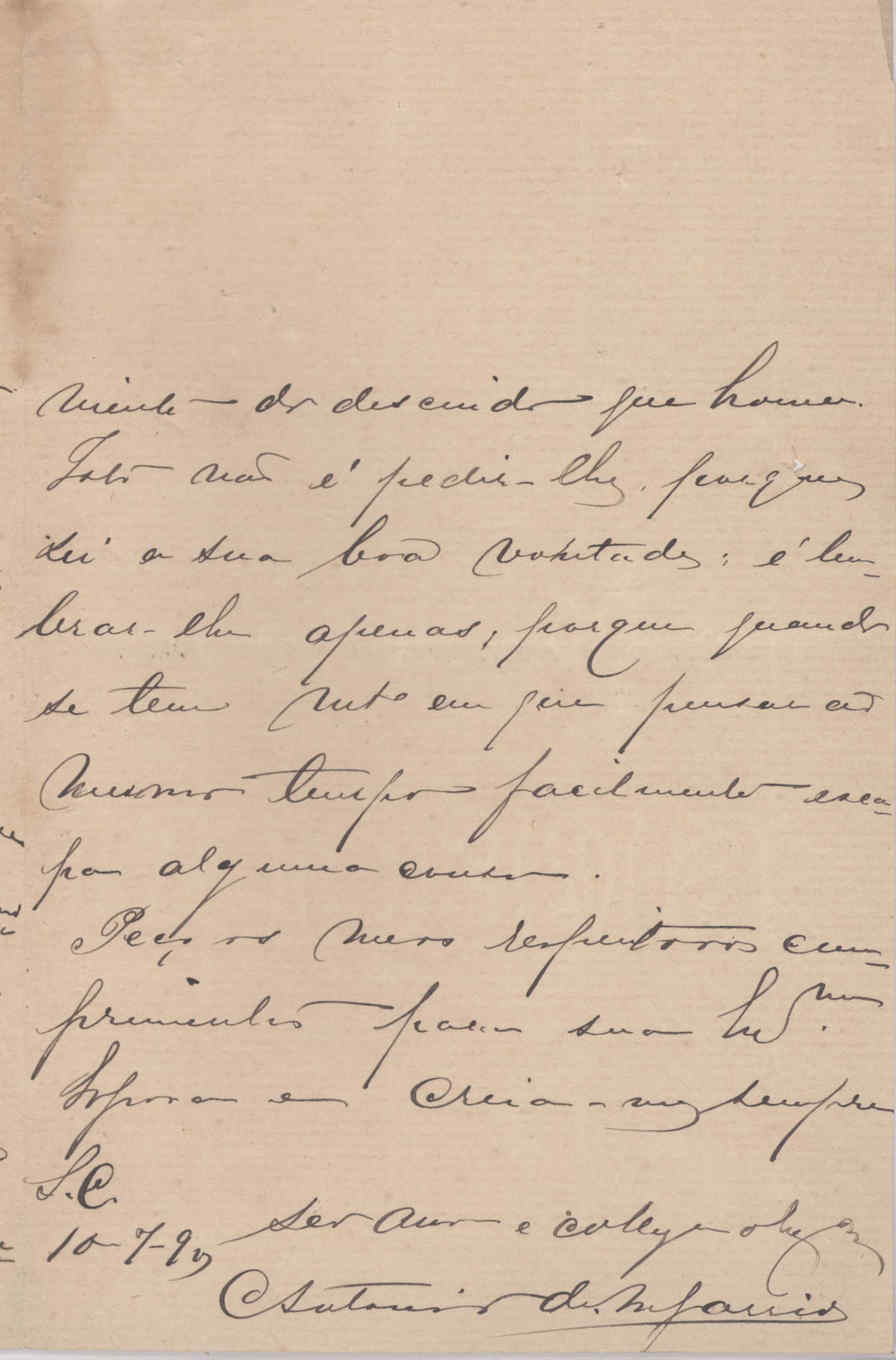 mente do descuido que houve.
Isto não é pedir-lhe, porque
sei a sua boa vontade; é lem-
brar-lhe apenas, porque quando
se tem mto em que pensar ao
mesmo tempo facilmente esca-
pa alguma cousa.
Peço os meus respeitosos cum-
primentos para sua
Esposa e creia-me sempre
S.C.
seu amo e collega obrgo
10-7-9
Antonio de